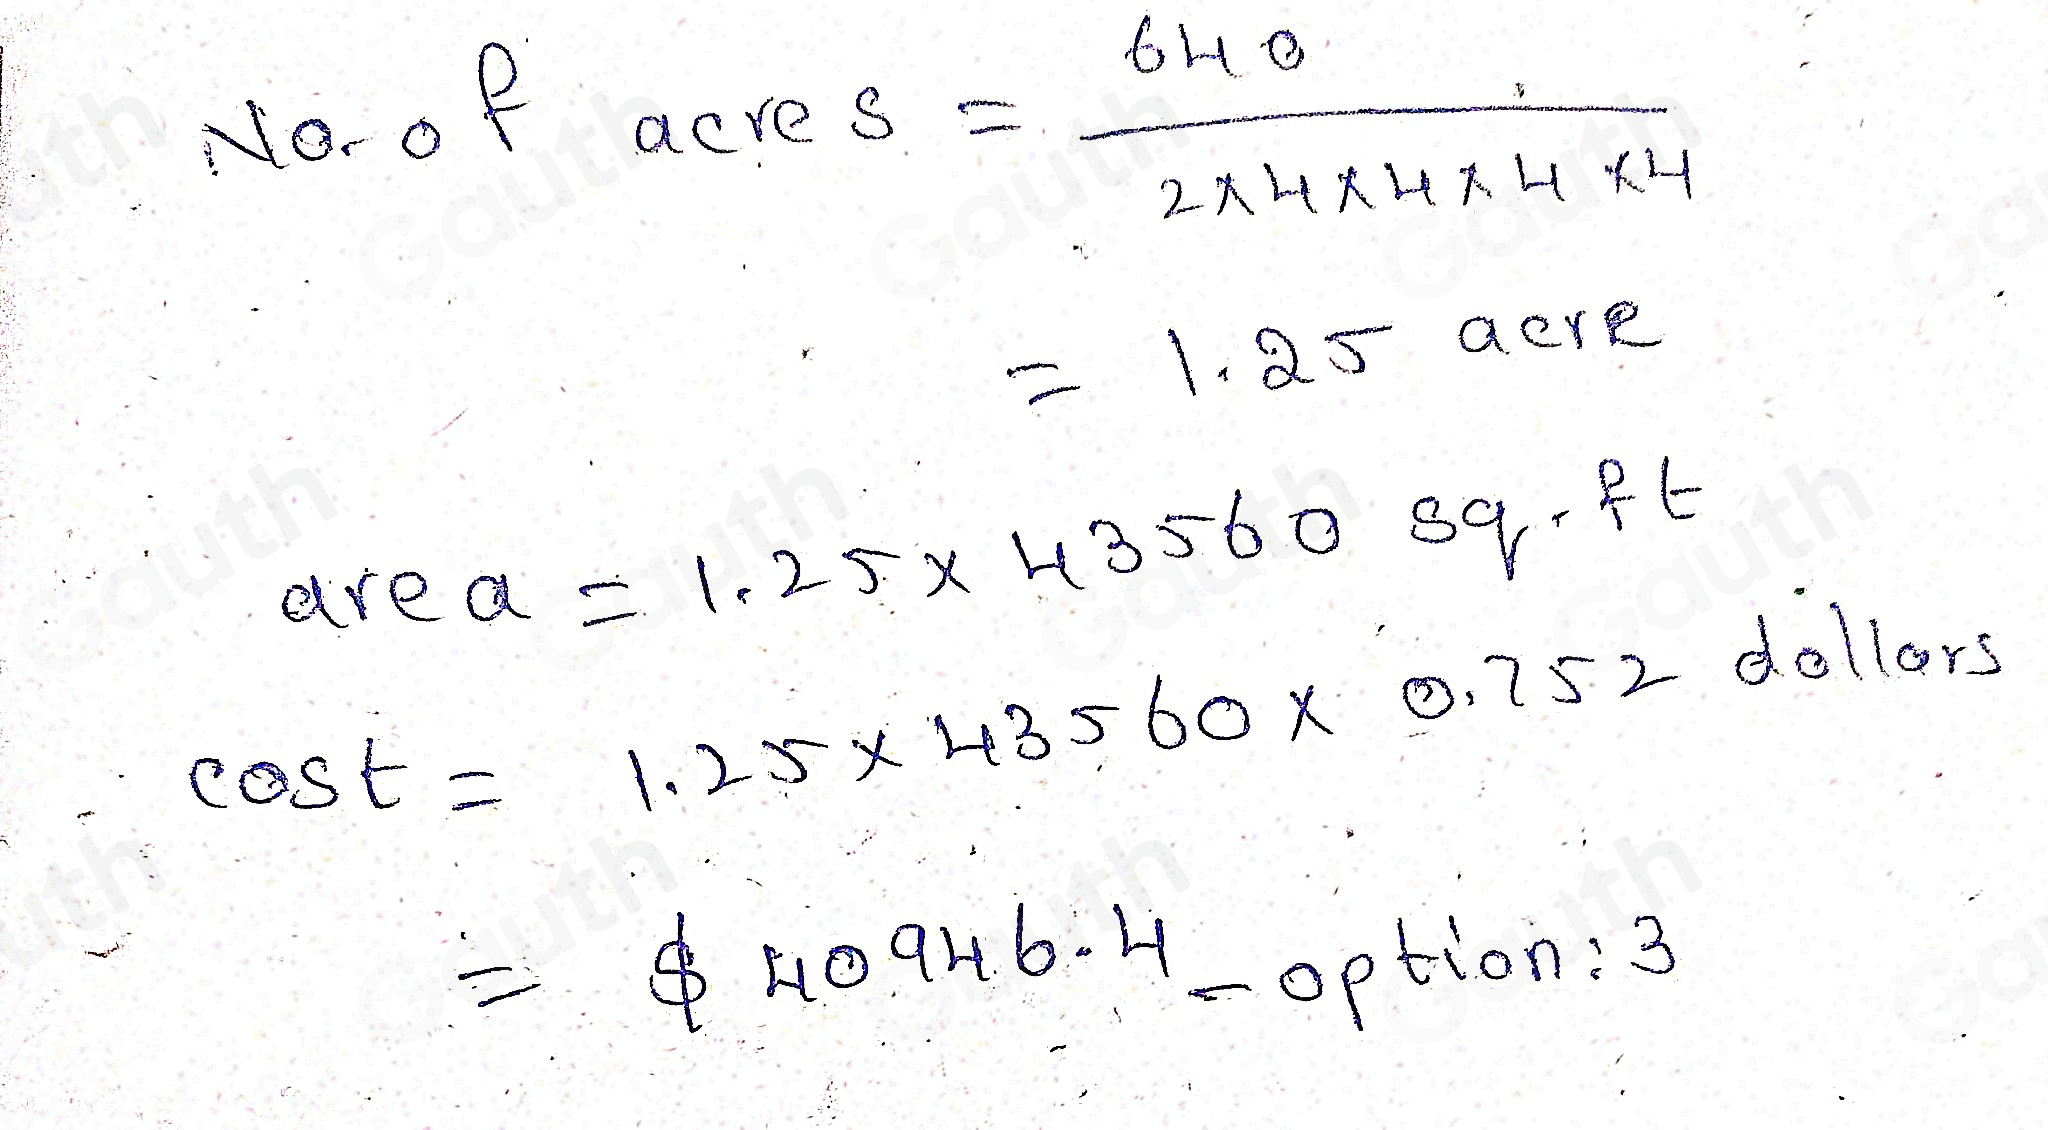 No. of acres = 640 / 2×4×4×4×4
= 1.25 acre
area = 1.25 × 43560 sq.ft
cost = 1.25 × 43560 × 0.752 dollars
= $ 40946.4 - option: 3